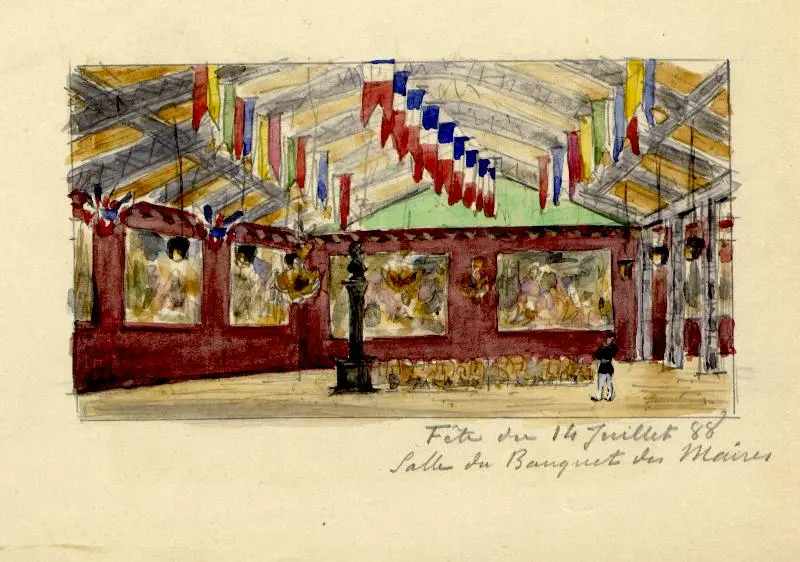 Fête du 14 Juillet 88
Salle du Banquet des Maires